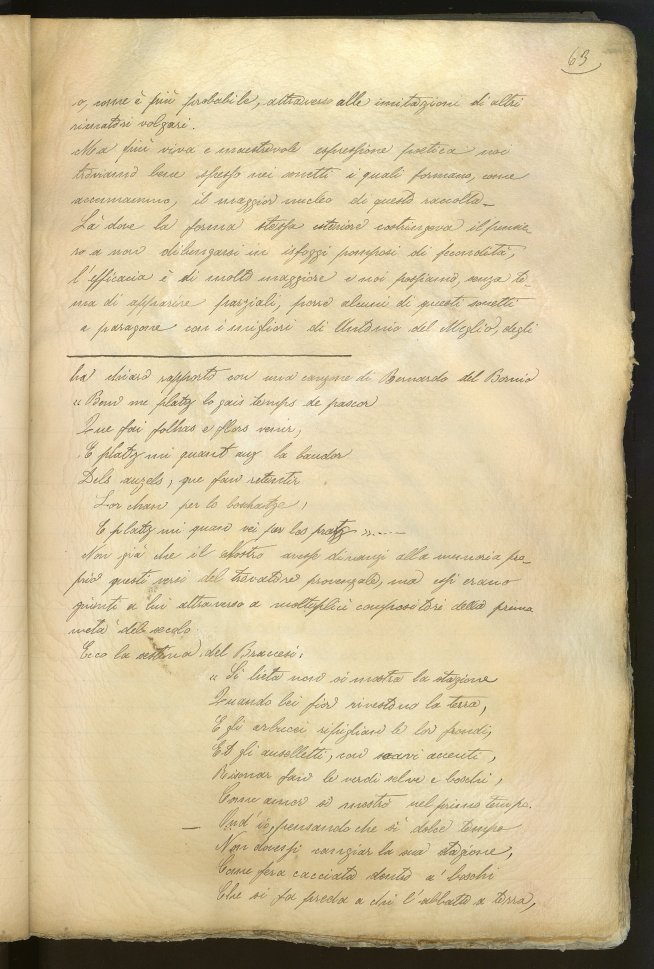 63
o, come è più probabile, attraverso alle imitazioni di altri
rimatori volgari.
Ma più viva e maestrevole espressione poetica noi
troviamo bene spesso nei sonetti i quali formano, come
accennammo, il maggior nucleo di questa raccolta.
Là dove la forma stessa esteriore costringeva il pensie
ro a non dilungarsi in isfoggi pomposi di fecondità,
l'efficacia è di molto maggiore e noi possiamo, senza te-
ma di apparire parziali, porre alcuni di questi sonetti
a paragone con i migliori di Antonio del Meglio, degli
ha chiaro rapporto con una canzone di Bernardo del Bornio
« Bem me platz lo gais temps de pascor
Que fai folhas e flors venir,
E platz mi quant aug la baudor
Dels auzels, que fan retentir
Lor chan per lo boshatge,
E platz mi quan vei per los pratz »......
Non già che il Nostro avesse dinanzi alla memoria pro-
prio questi versi del trovatore provenzale, ma essi erano
giunti a lui attraverso a molteplici compositori della prima
metà del secolo.
Ecco la sestina del Braccesi:
« Sì lieta non si mostra la stagione
Quando bei fior rivestono la terra,
E gli arbucci ripiglian le lor frondi,
Et gli auselletti, con soavi accenti,
Risonar fan le verdi selve e boschi,
Come amor si mostrò nel primo tempo.
— Ond'io, pensando che sì dolce tempo
Non dovessi cangiar la sua stagione,
Come fera cacciata dentro a' boschi
Che si fa preda a chi l'abbatte a terra,